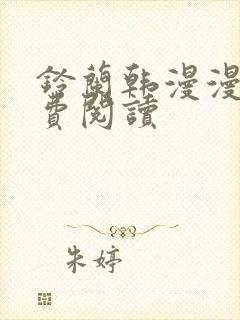 鈴蘭韩漫漫
費閱讀
朱婷